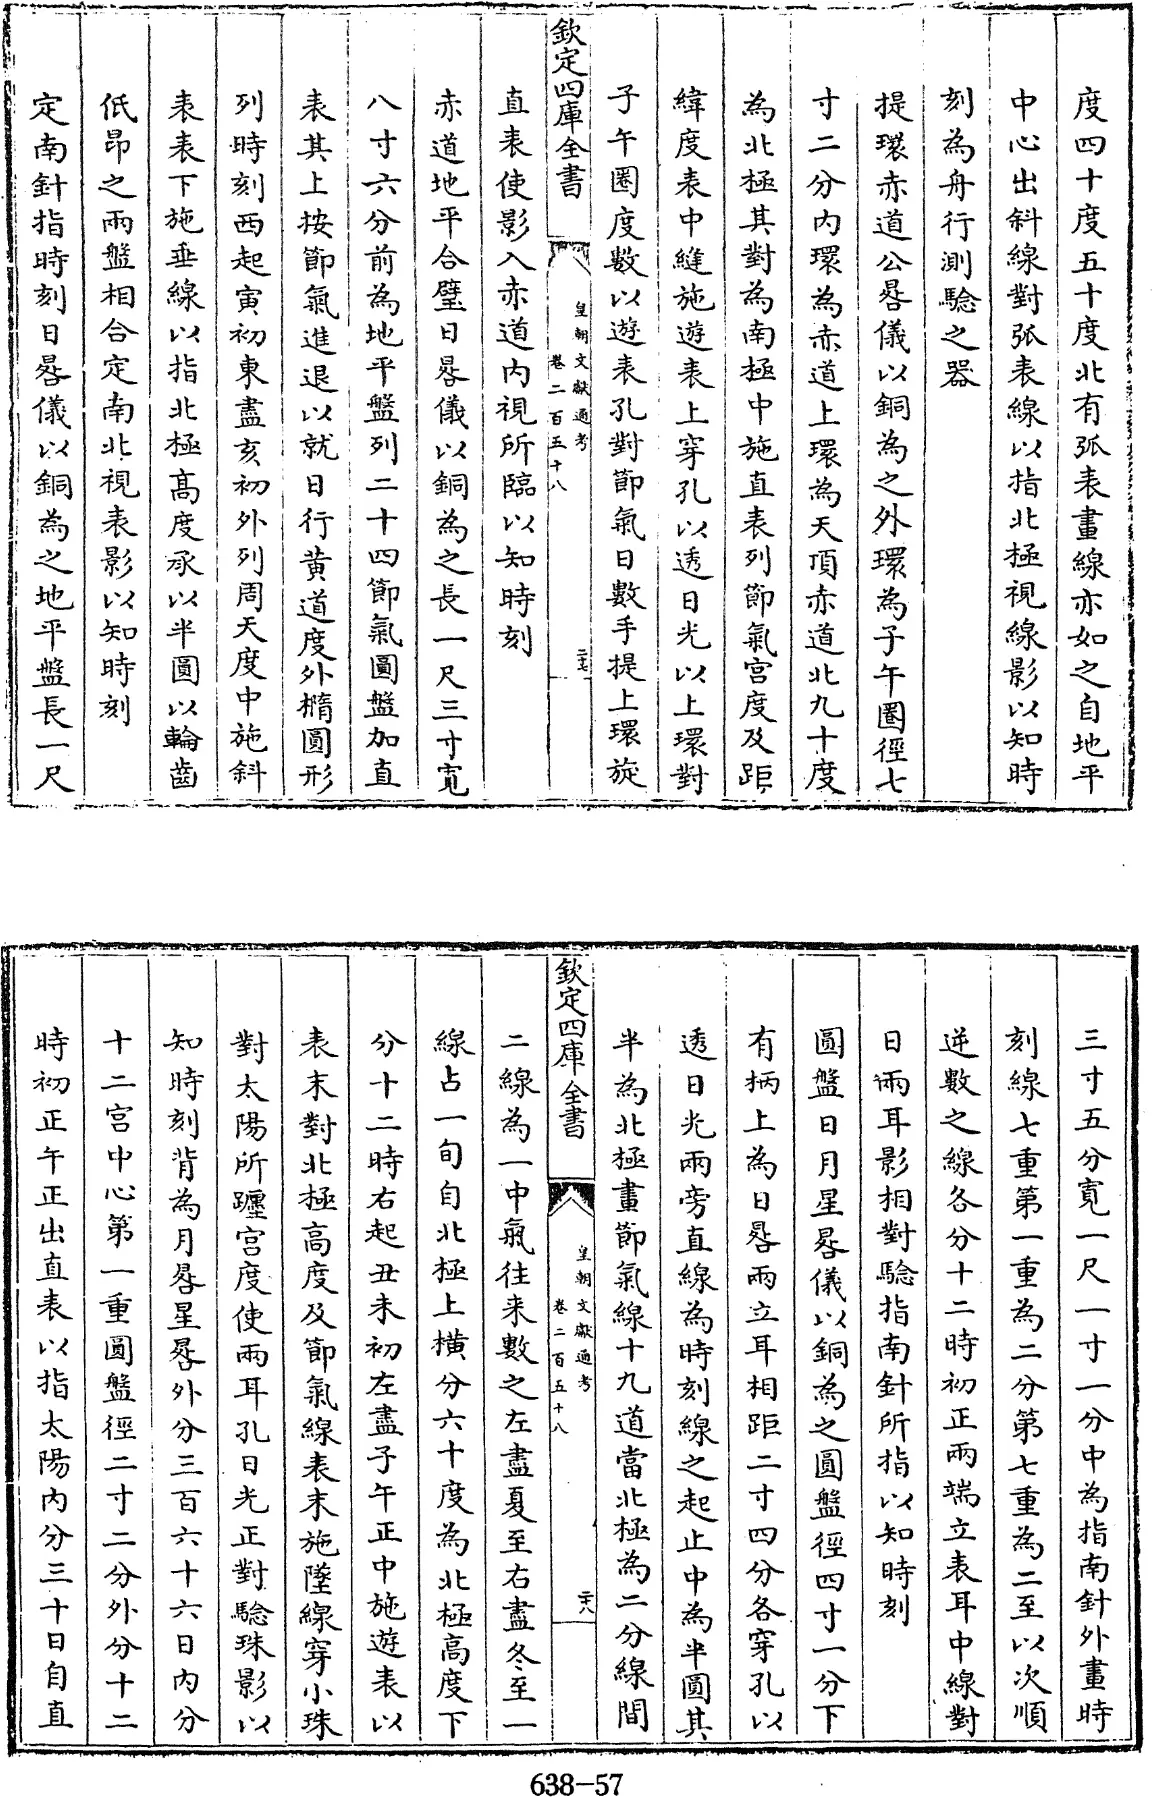 度四十度五十度北有弧表畫線亦如之自地平
中心出斜線對弧表線以指北極視線影以知時
刻為舟行測驗之器
提環赤道公晷儀以銅為之外環為子午圈徑七
寸二分内環為赤道上環為天頂赤道北九十度
為北極其對為南極中施直表列節氣宫度及距
緯度表中縫施遊表上穿孔以透日光以上環對
子午圈度數以遊表孔對節氣日數手提上環旋
欽定四庫全書
皇朝文獻通考
卷二百五十八
二十七
直表使影入赤道内視所臨以知時刻
赤道地平合璧日晷儀以銅為之長一尺三寸寛
八寸六分前為地平盤列二十四節氣圓盤加直
表其上按節氣進退以就日行黄道度外橢圓形
列時刻西起寅初東盡亥初外列周天度中施斜
表表下施垂線以指北極髙度承以半圓以輪齒
低昂之兩盤相合定南北視表影以知時刻
定南針指時刻日晷儀以銅為之地平盤長一尺
三寸五分寛一尺一寸一分中為指南針外畫時
刻線七重第一重為二分第七重為二至以次順
逆數之線各分十二時初正兩端立表耳中線對
日兩耳影相對驗指南針所指以知時刻
圓盤日月星晷儀以銅為之圓盤徑四寸一分下
有柄上為日晷兩立耳相距二寸四分各穿孔以
透日光兩旁直線為時刻線之起止中為半圓其
半為北極畫節氣線十九道當北極為二分線間
欽定四庫全書
皇朝文獻通考
卷二百五十八
二十八
二線為一中氣往来數之左盡夏至右盡冬至一
線占一旬自北極上横分六十度為北極高度下
分十二時右起丑未初左盡子午正中施遊表以
表末對北極高度及節氣線表末施墜線穿小珠
對太陽所躔宫度使兩耳孔日光正對驗珠影以
知時刻背為月晷星晷外分三百六十六日内分
十二宫中心第一重圓盤徑二寸二分外分十二
時初正午正出直表以指太陽内分三十日自直
638-57